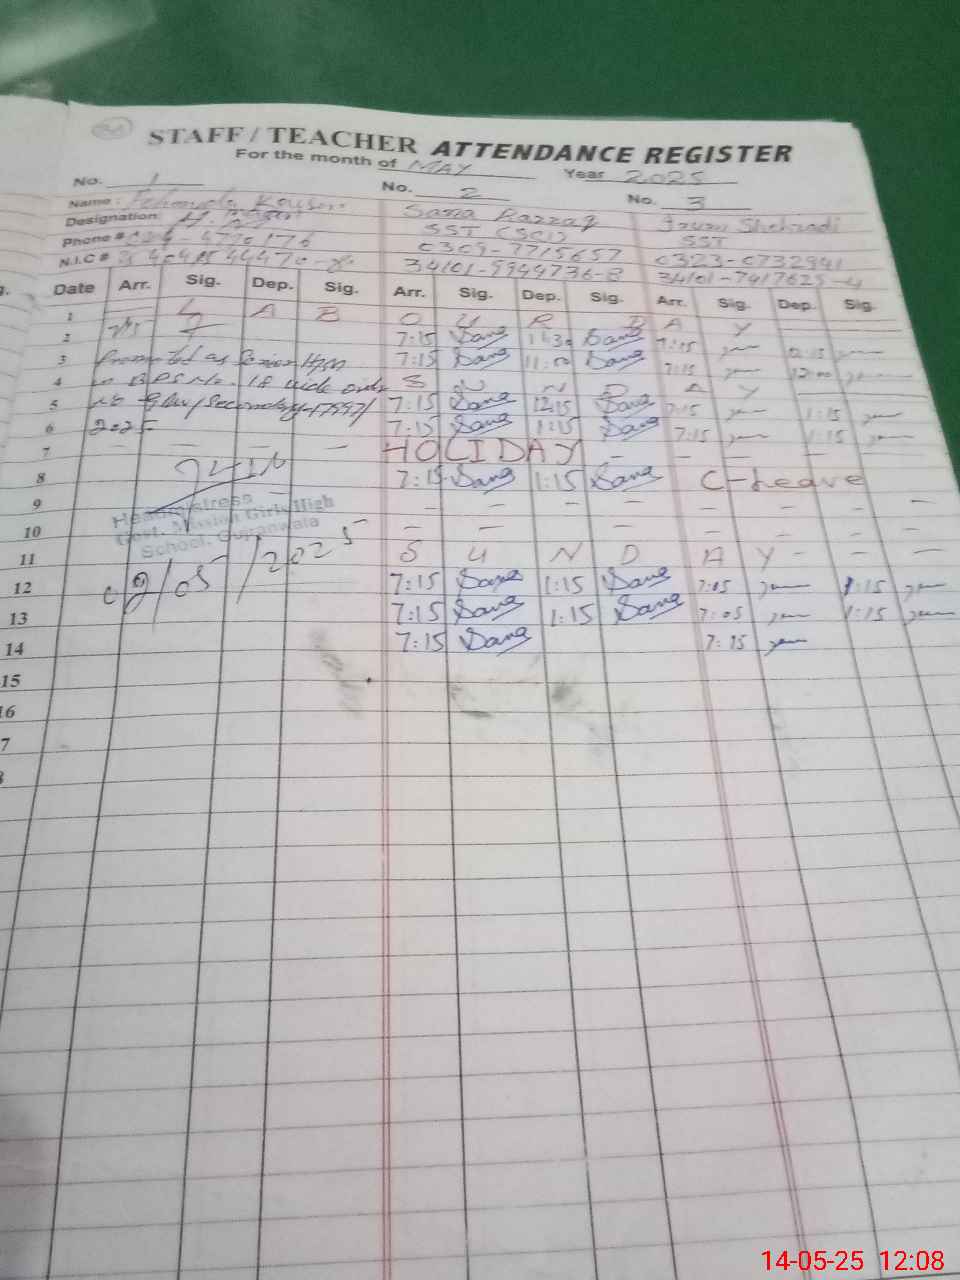 STAFF / TEACHER ATTENDANCE REGISTER
For the month of MAY Year 2025
No. 1 No. 2 No. 3
Name : Sana Razzaq Shehzadi
Designation SST (SCI) SST
Phone # 0309-7715657 0323-0732941
N.I.C # 34101-9944736-8 34101-7417625-4
Date Arr. Sig. Dep. Sig. Arr. Sig. Dep. Sig. Arr. Sig. Dep. Sig.
1 L A B O U R D A Y
2 7:15 Sana 11:30 Sana 7:15 12:15
3 Promoted as Senior H/M 7:15 Sana 11:00 Sana 7:15 12:00
4 in BPS No. 18 vide order S U N D A Y
5 No 7:15 Sana 12:15 Sana 7:15 1:15
6 2025 7:15 Sana 1:15 Sana 7:15 1:15
7 — — — — HOLIDAY — — — —
8 7:15 Sana 1:15 Sana C-Leave
9 - — — — — — —
Headmistress
Govt. Mission Girls High
School, Gujranwala
10 — — — — — — —
11 S U N D A Y - — —
02/05/2025
12 7:15 Sana 1:15 Sana 7:05 1:15
13 7:15 Sana 1:15 Sana 7:05 1:15
14 7:15 Sana 7:15
15
16
7
14-05-25 12:08